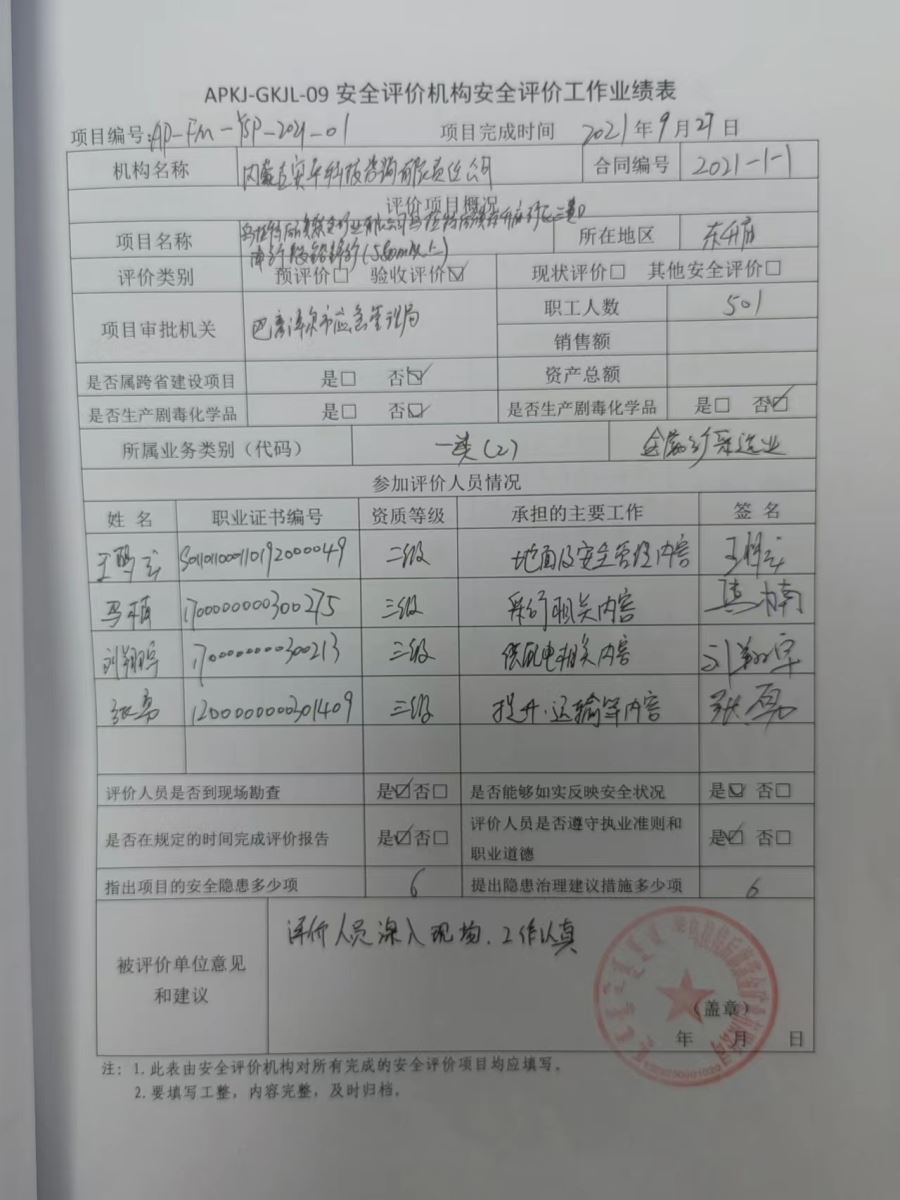 APKJ-GKJL-09 安全评价机构安全评价工作业绩表
项目编号:AP-FM-YSP-2021-01 项目完成时间 2021年9月27日
机构名称 内蒙古安平科技咨询有限责任公司 合同编号 2021-1-1
评价项目概况
项目名称 所在地区 东升庙
(560m以上)
评价类别 预评价□ 验收评价☑ 现状评价□ 其他安全评价□
项目审批机关 巴彦淖尔市应急管理局 职工人数 501
销售额
是否属跨省建设项目 是□ 否☑ 资产总额
是否生产剧毒化学品 是□ 否☑ 是否生产剧毒化学品 是□ 否☑
所属业务类别（代码） 一类(2) 金属矿采选业
参加评价人员情况
姓 名 职业证书编号 资质等级 承担的主要工作 签 名
S011011000110192000049 二级 地面及安全管理内容
马楠 1700000000300275 三级 采矿相关内容 马楠
刘翔宇 1700000000300213 三级 供配电相关内容 刘翔宇
张勇 1200000000301409 三级 提升、运输等内容 张勇
评价人员是否到现场勘查 是☑否□ 是否能够如实反映安全状况 是☑ 否□
是否在规定的时间完成评价报告 是☑否□ 评价人员是否遵守执业准则和
职业道德 是☑ 否□
指出项目的安全隐患多少项 6 提出隐患治理建议措施多少项 6
评价人员深入现场、工作认真
被评价单位意见
和建议
（盖章）
年 月 日
注：1.此表由安全评价机构对所有完成的安全评价项目均应填写。
2.要填写工整，内容完整，及时归档。